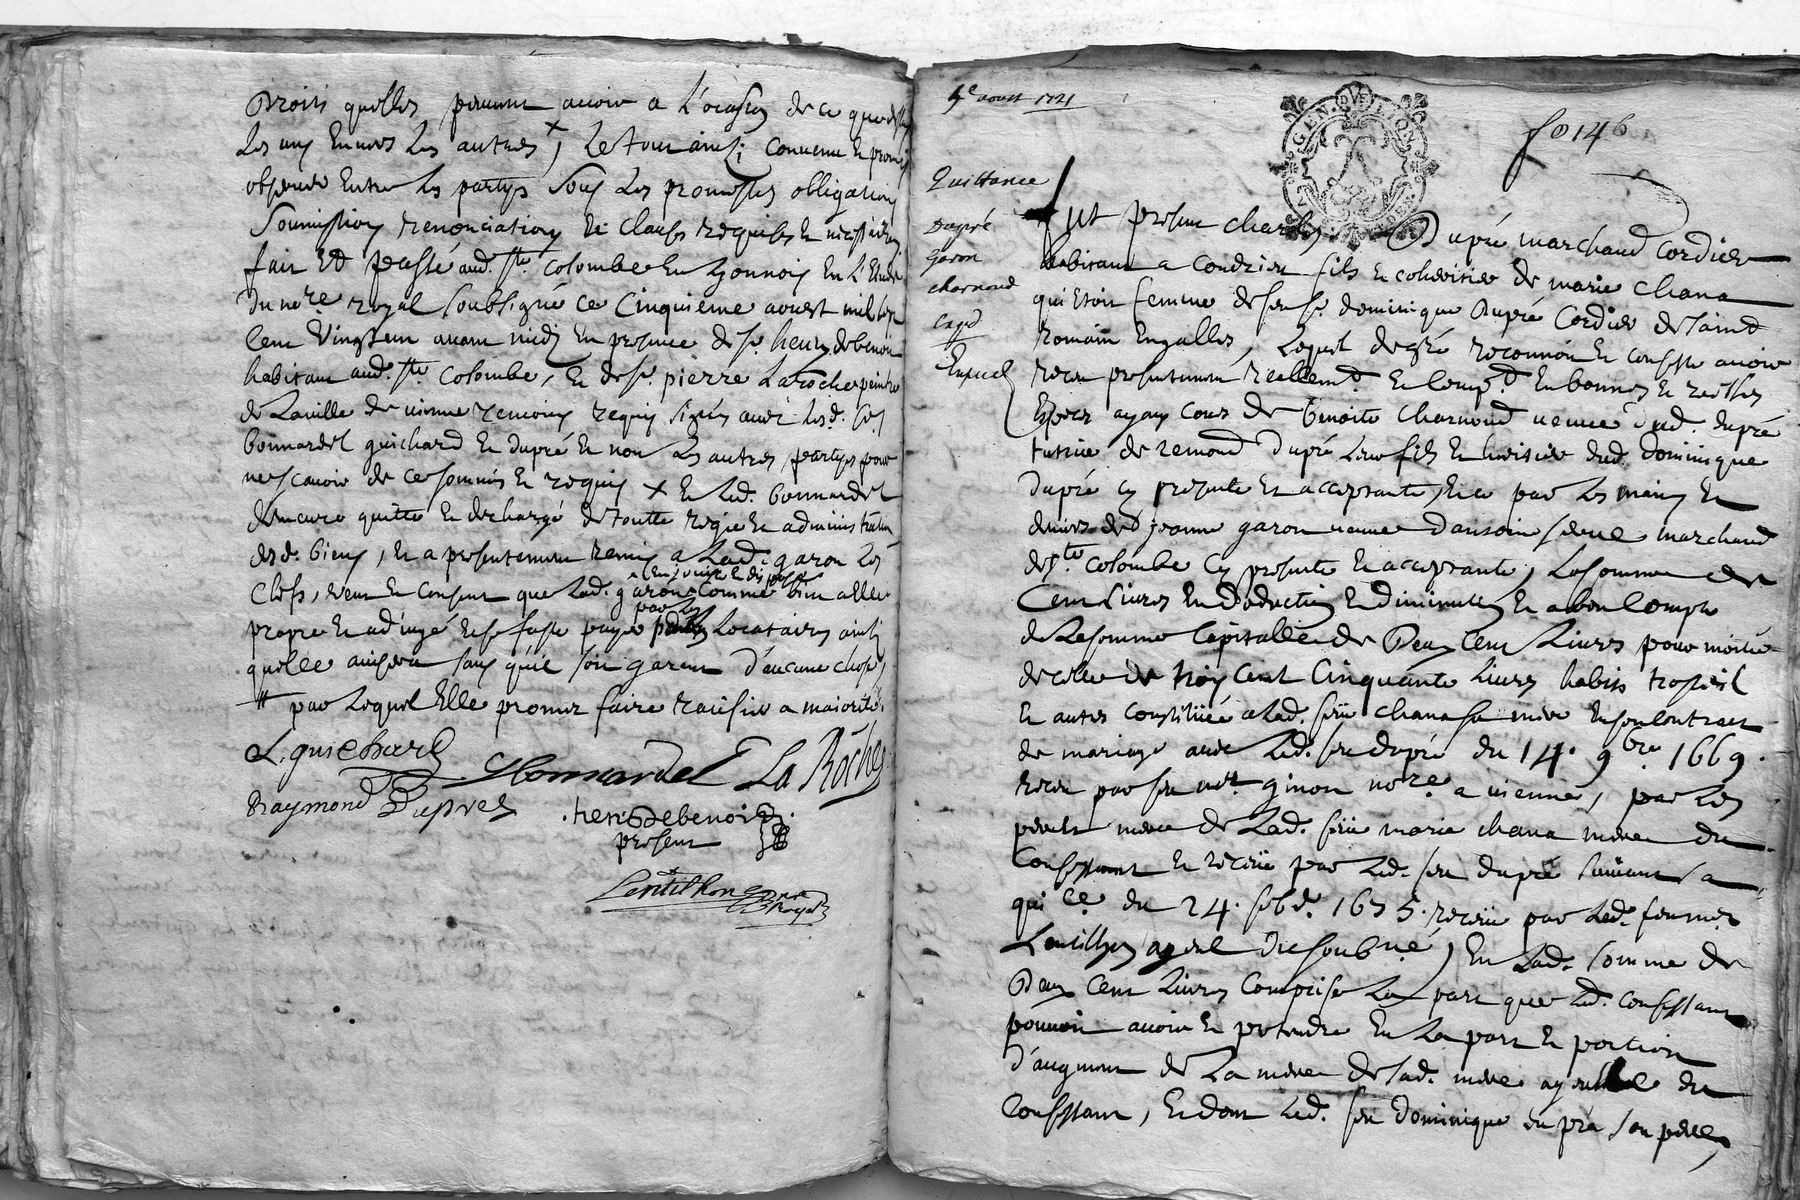 Droits quelles peuvent avoir a l'ocasion de ce que dessus
les uns Envers les autres x, le tout ainsi convenu Et promis
observer Entre les partyes sous les promesses obligations
soumissions renonciations Et clauses requises Et necessaires
fait Et passé aud. Ste colombe En lyonnois En l'Etude
du nore royal soubsigné ce cinquieme aoust mil sept
cent vingt un avant midy En presence de sr. henry debenoit
habitant aud. Ste. colombe, Et de sr. pierre Laroche peintre
de la ville de vienne temoins requis signés avec lesd.
bonnardel guichard Et dupré Et non les autres partyes pour
ne scavoir de ce sommés Et requis x Et led. bonnardel
demeure quitte Et dechargé de toutte regie Et administration
desd. biens, Et a presentement remis a Lad. garon les
clefs, veut Et consent que Lad. garon comme bien a elle
En jouisse Et dispose
propre Et adjugé Et se fasse payer par les locataires ainsi
quelle avisera sans qu'il soit garent d'aucune chose,
# par lequel Elle promet faire ratifier a majorité.
L. guichard Bonnardel La Roche
Raymond Dupres henry debenoit
present
Lentilhon nore Royal
5e aoust 1721
GEN. DVE LION
fo 146
Quittance
Dupré
garon
charnoud
Cayd
Expedié
fut present charles Dupré marchand cordier
habitant a condrieu fils Et coheritier de marie chana
qui Etoit femme de feu sr. dominique Dupré cordier de saint
romain Engallier, lequel de gré reconnoit Et confesse avoir
receu presentement reellemt Et compt En bonnes Et reelles
Especes ayant cours de benoite charnoud veuve dud. dupré
tutrice de remond dupré leur fils Et heritier dud. dominique
dupré cy presente Et acceptante, Et ce par les mains Et
deniers de jeanne garon veuve d'antoine marchand
de Ste. colombe cy presente Et acceptante, la somme de
Cent Livres En deduction Et diminution Et a bon compte
de la somme capitalle de Deux cent Livres pour moitié
de celle de trois cent cinquante livres habits trosseil
Et autres constituée a Lad. feüe chana sa mere En son contract
de mariage avec led. feu dupré du 14. 9bre 1669.
receu par feu me. ginon nore a vienne, par les
pere Et mere de Lad. feüe marie chana mere du
confessant Et receüe par led. feu dupré suivant sa
quice du 24. febr. 1675. receüe par led. feu me
Lentilhon ayeul du soubné, En Lad. somme de
Deux cent Livres comprise la part que led. confessant
pouvoit avoir Et pretendre En la part Et portion
d'augment de La mere de lad. mere ayeulle du
confessant, Et dont led. feu dominique dupré son pere,